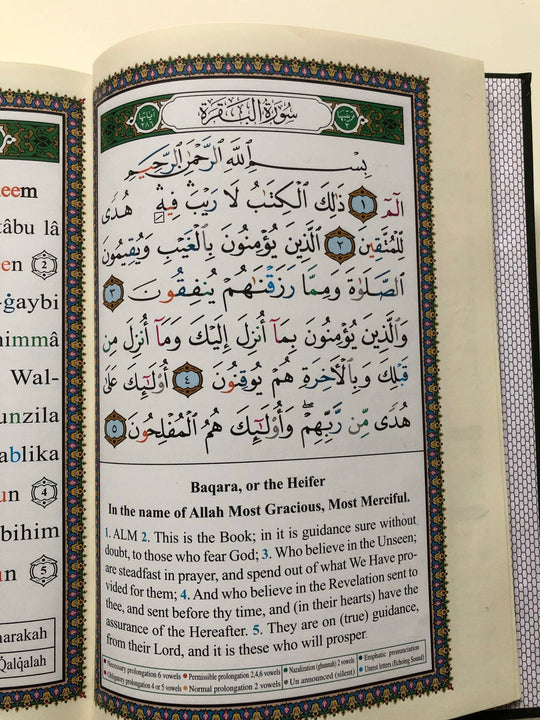 سُورَةُ الْبَقَرَةِ
بِسْمِ اللَّهِ الرَّحْمَٰنِ الرَّحِيمِ
الٓمٓ ١ ذَٰلِكَ الْكِتَٰبُ لَا رَيْبَ ۛ فِيهِ ۛ هُدًى
لِّلْمُتَّقِينَ ٢ الَّذِينَ يُؤْمِنُونَ بِالْغَيْبِ وَيُقِيمُونَ
الصَّلَوٰةَ وَمِمَّا رَزَقْنَٰهُمْ يُنفِقُونَ ٣
وَالَّذِينَ يُؤْمِنُونَ بِمَآ أُنزِلَ إِلَيْكَ وَمَآ أُنزِلَ مِن
قَبْلِكَ وَبِالْآخِرَةِ هُمْ يُوقِنُونَ ٤ أُو۟لَٰٓئِكَ عَلَىٰ
هُدًى مِّن رَّبِّهِمْ ۖ وَأُو۟لَٰٓئِكَ هُمُ الْمُفْلِحُونَ ٥
Baqara, or the Heifer
In the name of Allah Most Gracious, Most Merciful.
1. ALM 2. This is the Book; in it is guidance sure without
doubt, to those who fear God; 3. Who believe in the Unseen;
are steadfast in prayer, and spend out of what We have pro-
vided for them; 4. And who believe in the Revelation sent to
thee, and sent before thy time, and (in their hearts) have the
assurance of the Hereafter. 5. They are on (true) guidance,
from their Lord, and it is these who will prosper.
Necessary prolongation 6 vowels Permissible prolongation 2,4,6 vowels Nazalization (ghunnah) 2 vowels Emphatic pronunciation
Obligatory prolongation 4 or 5 vowels Normal prolongation 2 vowels Un announced (silent) Unrest letters (Echoing Sound)
eem
tâbu lâ
en 2
-ġaybi
immâ
3
Wal-
unzila
ablika
un 4
bihim
un 5
arakah
Qalqalah